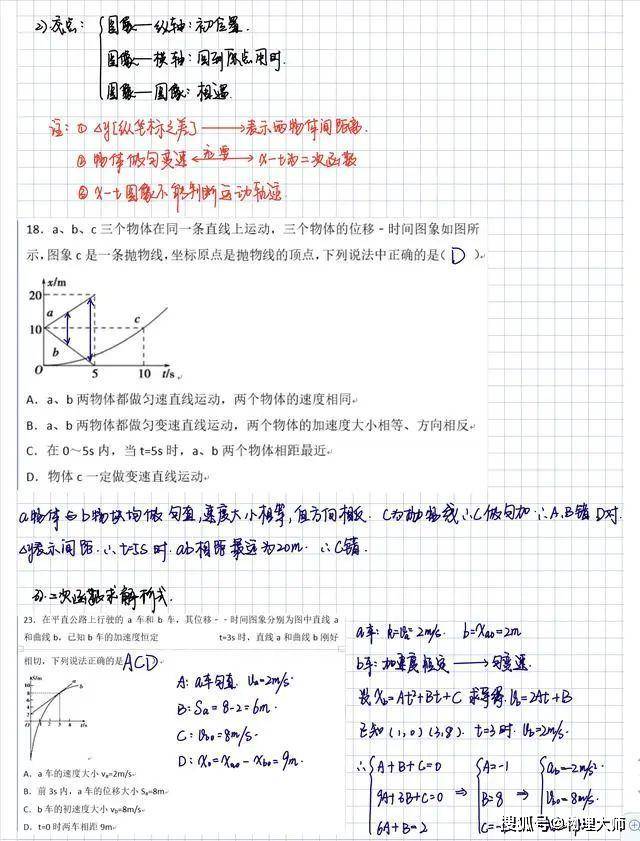 2) 交点：
图像—纵轴：初位置.
图像—横轴：回到原点用时.
图像—图像：相遇.
注：① Δy[纵坐标之差]——→表示两物体间距离.
② 物体做匀变速 ←充要→ x-t为二次函数
③ x-t图像不能判断运动轨迹.
18．a、b、c 三个物体在同一条直线上运动，三个物体的位移﹣时间图象如图所
示，图象 c 是一条抛物线，坐标原点是抛物线的顶点，下列说法中正确的是（ D ）
x/m
20
a
10
c
b
O
5
10
t/s
A．a、b 两物体都做匀速直线运动，两个物体的速度相同
B．a、b 两物体都做匀变速直线运动，两个物体的加速度大小相等、方向相反
C．在 0～5s 内，当 t=5s 时，a、b 两个物体相距最近
D．物体 c 一定做变速直线运动
a物体与b物块均做匀直,速度大小相等,但方向相反. C为抛物线∴C做匀加∴A.B错 D对.
Δy表示间距.∴t=5s时.ab相距最远为20m. ∴C错.
3).二次函数求解析式.
23．在平直公路上行驶的 a 车和 b 车，其位移﹣﹣时间图象分别为图中直线 a
和曲线 b，已知 b 车的加速度恒定 t=3s 时，直线 a 和曲线 b 刚好
相切，下列说法正确的是 ACD
A．a 车的速度大小 va=2m/s
B．前 3s 内，a 车的位移大小 Sa=8m
C．b 车的初速度大小 vb=8m/s
D．t=0 时两车相距 9m
A: a车匀直 Va=2m/s
B: Sa=8-2=6m.
C: Vb0=8m/s.
D: X0=Xa0-Xb0=9m.
a车: k=Va=2m/s. b=Xa0=2m
b车: 加速度恒定 ——→ 匀变速.
设 Xb=At²+Bt+C 求导得.Vb=2At+B
已知(1,0)(3,8). t=3时.Vb=2m/s.
∴ A+B+C=0
9A+3B+C=0
6A+B=2
⇒ A=-1
B=8
⇒ ab=-2m/s².
Vb0=8m/s.
搜狐号@物理大师